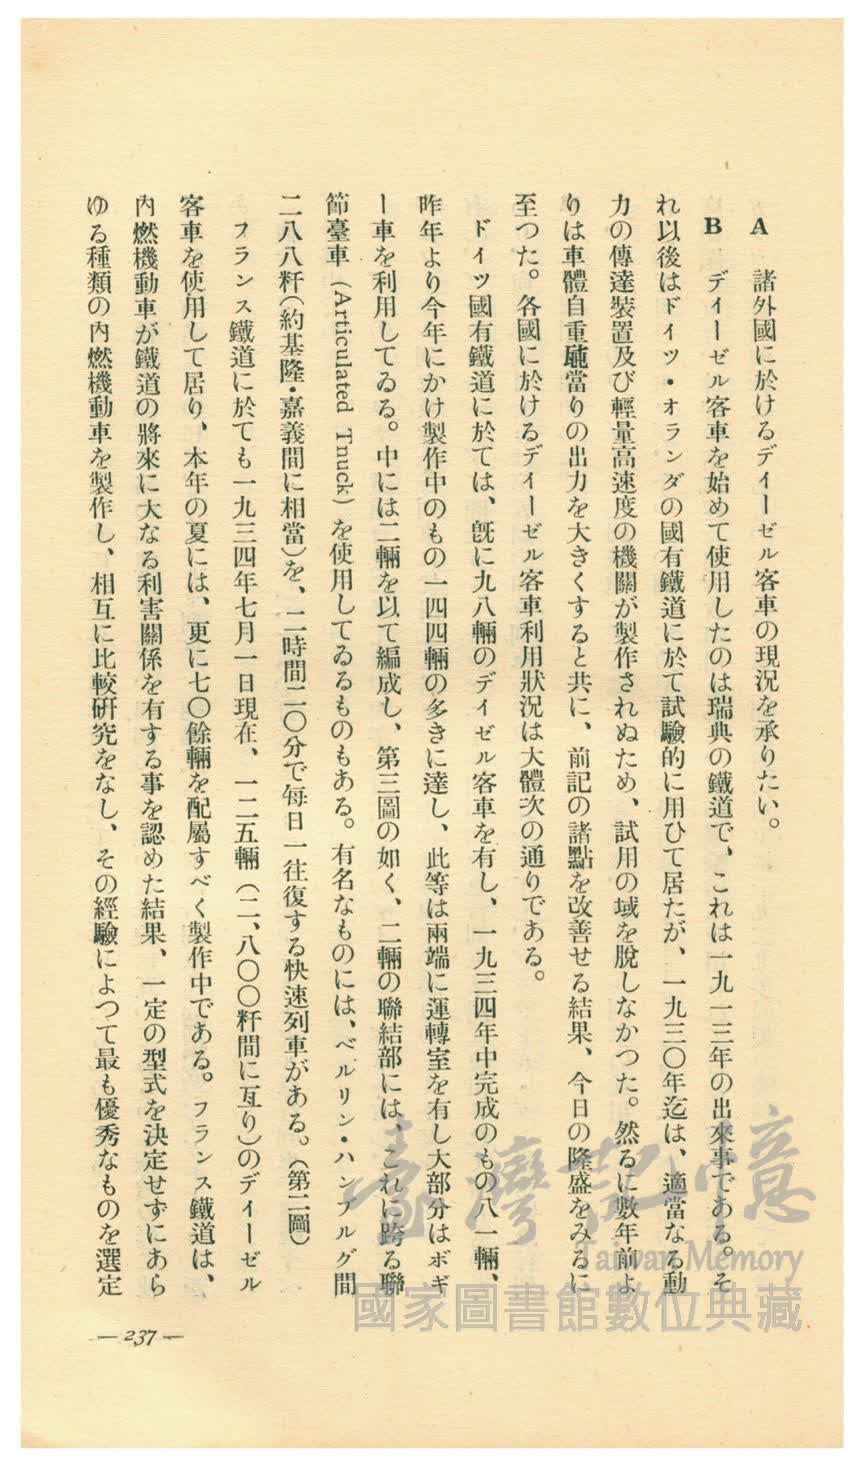 A 諸外國に於けるデイーゼル客車の現況を承りたい。
B デイーゼル客車を始めて使用したのは瑞典の鐵道で、これは一九一三年の出來事である。そ
れ以後はドイツ・オランダの國有鐵道に於て試驗的に用ひて居たが、一九三〇年迄は、適當なる動
力の傳達裝置及び輕量高速度の機關が製作されぬため、試用の域を脫しなかつた。然るに數年前よ
りは車體自重瓲當りの出力を大きくすると共に、前記の諸點を改善せる結果、今日の隆盛をみるに
至つた。各國に於けるデイーゼル客車利用狀況は大體次の通りである。
ドイツ國有鐵道に於ては、旣に九八輛のデイゼル客車を有し、一九三四年中完成のもの八一輛、
昨年より今年にかけ製作中のもの一四四輛の多きに達し、此等は兩端に運轉室を有し大部分はボギ
ー車を利用してゐる。中には二輛を以て編成し、第三圖の如く、二輛の聯結部には、これに跨る聯
節臺車(Articulated Tnuck)を使用してゐるものもある。有名なものには、ベルリン・ハンブルグ間
二八八粁(約基隆・嘉義間に相當)を、二時間二〇分で每日一往復する快速列車がある。(第二圖)
フランス鐵道に於ても一九三四年七月一日現在、一二五輛(二、八〇〇粁間に亙り)のデイーゼル
客車を使用して居り、本年の夏には、更に七〇餘輛を配屬すべく製作中である。フランス鐵道は、
內燃機動車が鐵道の將來に大なる利害關係を有する事を認めた結果、一定の型式を決定せずにあら
ゆる種類の內燃機動車を製作し、相互に比較硏究をなし、その經驗によつて最も優秀なものを選定
—237—
臺灣記憶
Taiwan Memory
國家圖書館數位典藏